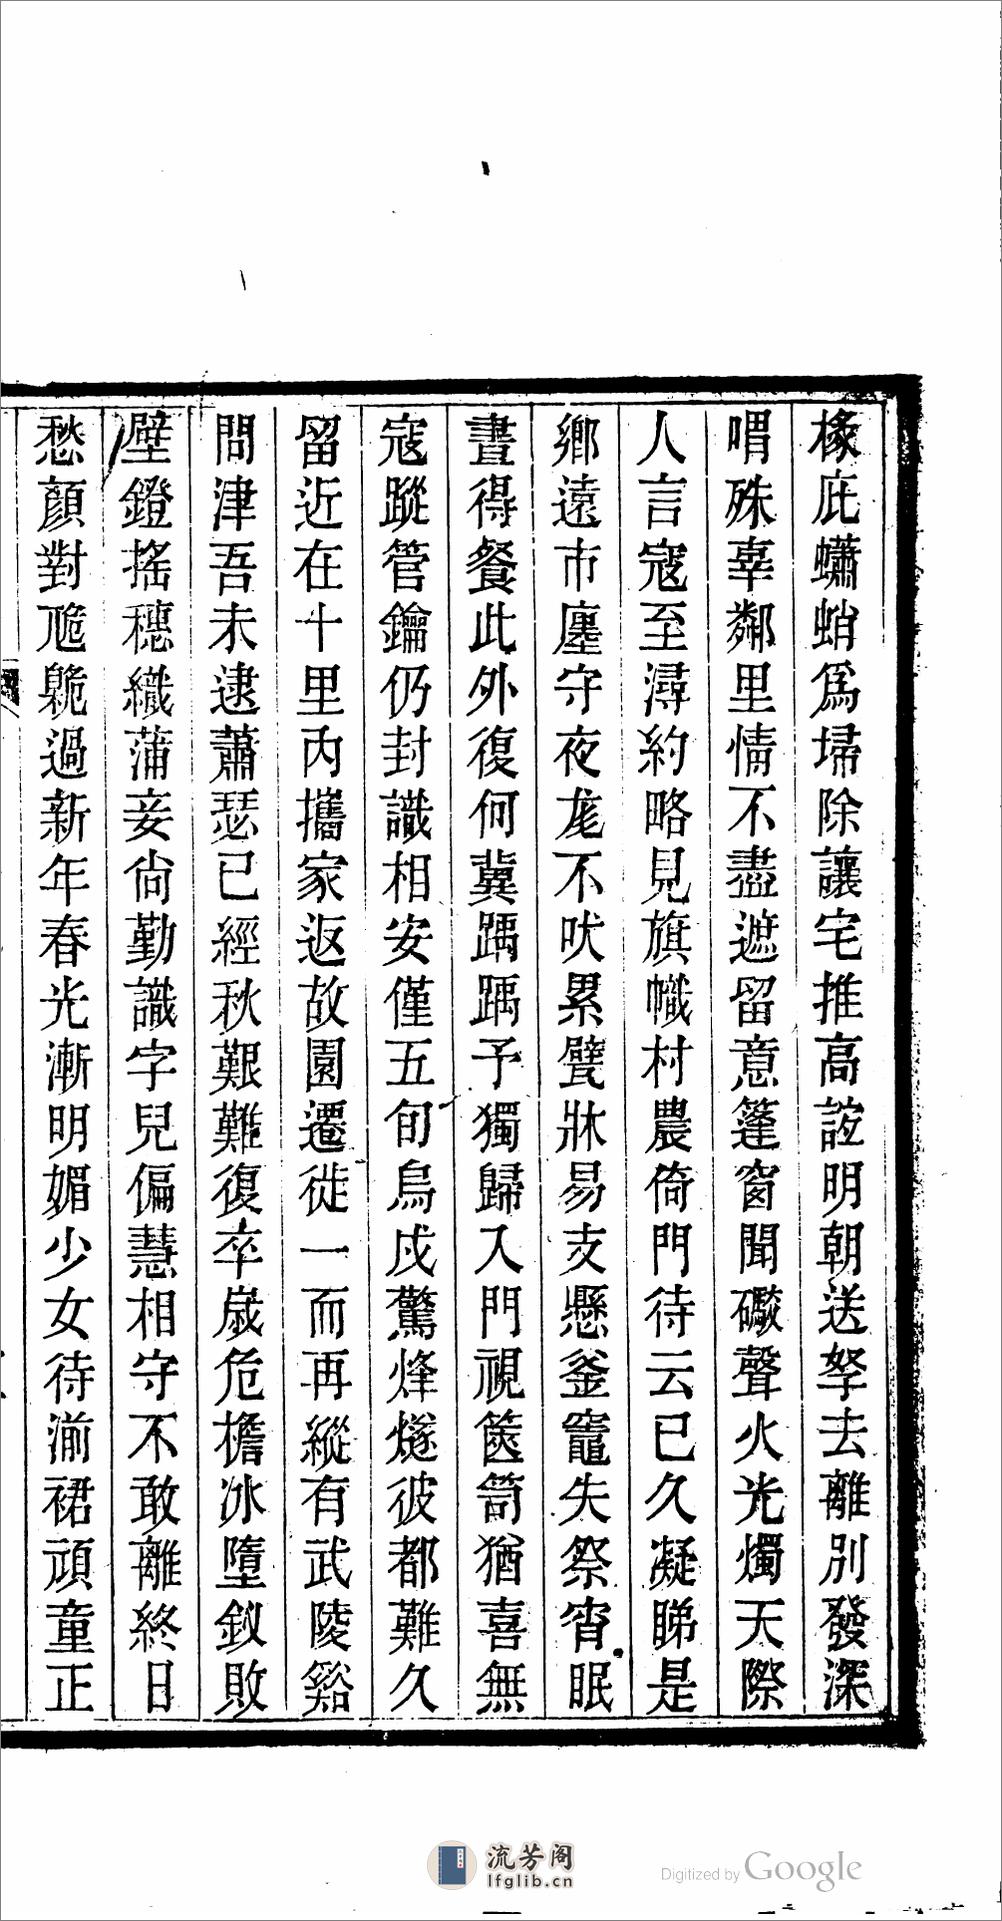 椽庇蠨蛸爲埽除讓宅推高誼明朝送孥去離別發深
喟殊辜鄰里情不盡遮留意篷窗聞礮聲火光燭天際
人言寇至潯約略見旗幟村農倚門待云已久凝睇是
鄉遠市廛守夜尨不吠累甓牀易支懸釜竈失祭宵眠
晝得餐此外復何冀踽踽予獨歸入門視篋笥猶喜無
寇蹤管鑰仍封識相安僅五旬烏戍驚烽燧彼都難久
留近在十里內攜家返故園遷徙一而再縱有武陵谿
問津吾未逮蕭瑟已經秋艱難復卒歲危檐冰墮釵敗
壁鐙搖穗織蒲妾尙勤識字兒偏慧相守不敢離終日
愁顏對臲卼過新年春光漸明媚少女待湔裙頑童正
流芳阁
lfglib.cn
Digitized by Google